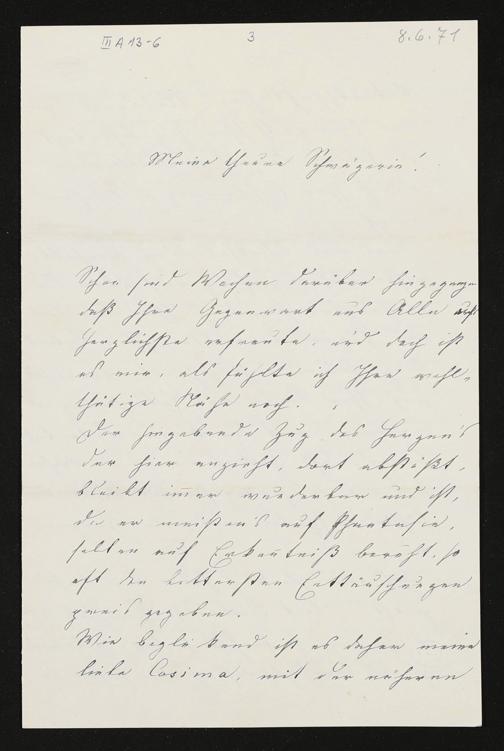 III A 13-6 3 8.6.71
Meine theure Schwägerin!
Schon sind Wochen darüber hingegangen
daß Ihre Gegenwart uns Alle aufs
herzlichste erfreute, und doch ist
es mir, als fühlte ich Ihre wohl-
thätige Nähe noch.
Der hingebende Zug des Herzens
der hier anzieht, dort abstößt,
bleibt immer wunderbar und ist,
da er meistens auf Phantasie,
selten auf Erkenntniß beruht, so
oft den bittersten Enttäuschungen
preis gegeben.
Wie beglückend ist es daher meine
liebe Cosima, mit der näheren